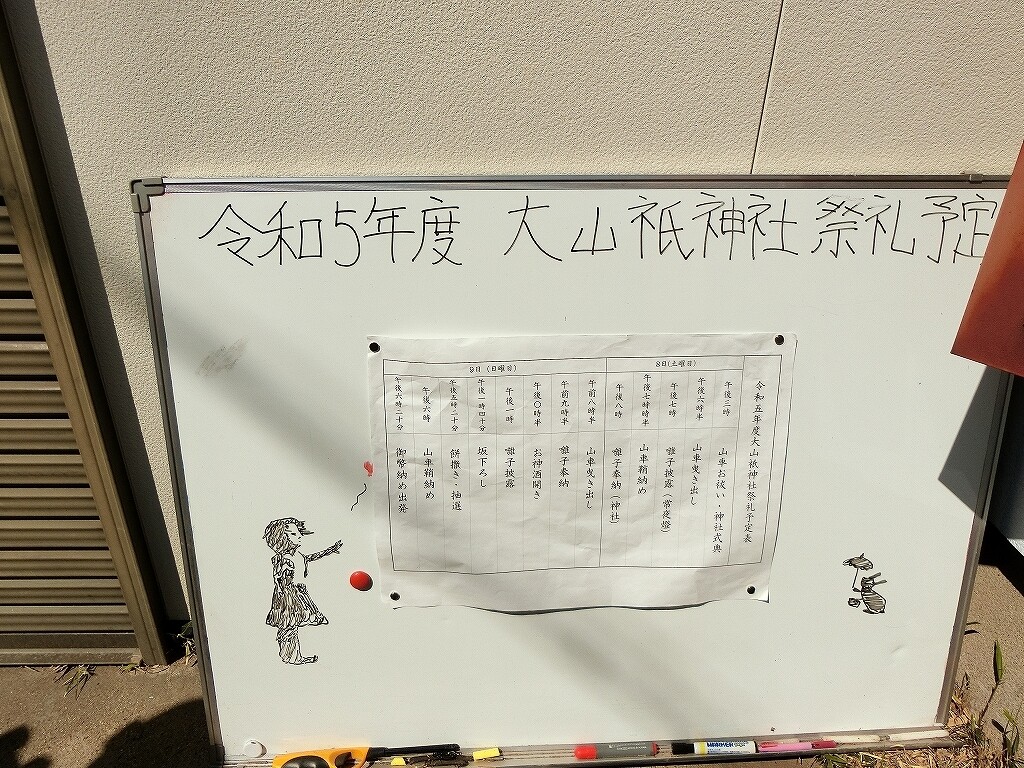 令和5年度 大山祇神社 祭礼予定
令和五年度大山祇神社祭礼予定表
8日(土曜日)
午後三時 山車お祓い・神社式典
午後六時半 山車曳き出し
午後七時 囃子披露(常夜燈)
午後七時時半 山車鞘納め
午後八時 囃子奉納(神社)
9日(日曜日)
午前八時半 山車曳き出し
午前九時半 囃子奉納
午後〇時半 お神酒開き
午後一時 囃子披露
午後一時四十分 坂下ろし
午後五時二十分 餅撒き・抽選
午後六時 山車鞘納め
午後六時二十分 御幣納め出発
MARKER